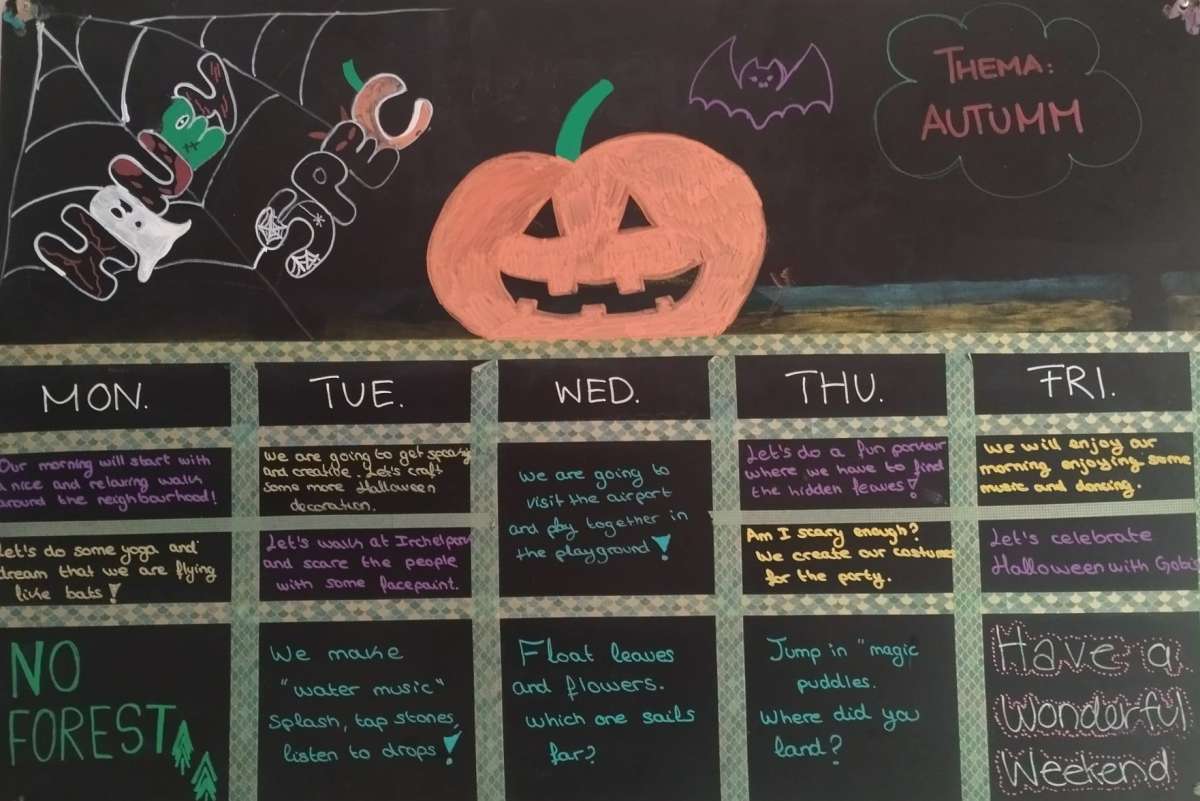 THEMA:
AUTUMM
MON.
Our morning will start with
a nice and relaxing walk
around the neighbourhood!
Let's do some yoga and
dream that we are flying
like bats!
NO
FOREST
TUE.
We are going to get spooky
and creative. Let's craft
some more Halloween
decoration.
Let's walk at Irchelpark
and scare the people
with some facepaint.
We make
"water music"
Splash, tap stones,
listen to drops!
WED.
We are going to
visit the airport
and play together in
the playground!
Float leaves
and flowers.
which one sails
far?
THU.
Let's do a fun parkour
where we have to find
the hidden leaves!
Am I scary enough?
We create our costumes
for the party.
Jump in "magic
puddles.
Where did you
land?
FRI.
We will enjoy our
morning enjoying some
music and dancing.
Let's celebrate
Halloween with
Have a
Wonderful
Weekend